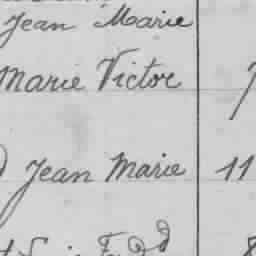 Jean Marie
Marie Victor
Jean Marie 11